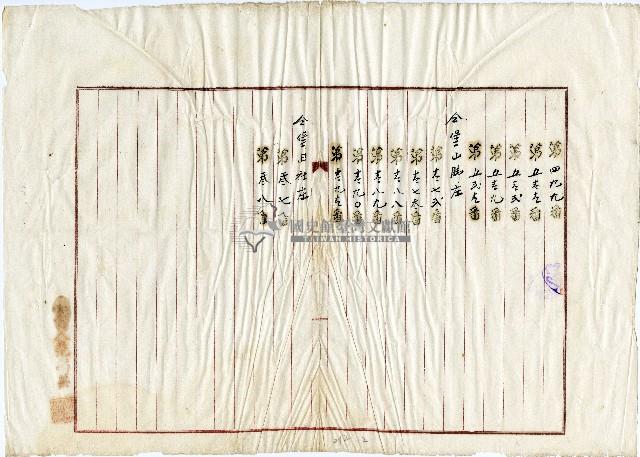 第四九九番
第五壱壱番
第五壱弐番
第五壱九番
第五弐壱番
仝堡山腳庄
第壱七弐番
第壱七参番
第壱八八番
第壱八九番
第壱九〇番
第壱九壱番
仝堡日社庄
第参七番
第参八番
國史館臺灣文獻館
TAIWAN HISTORICA